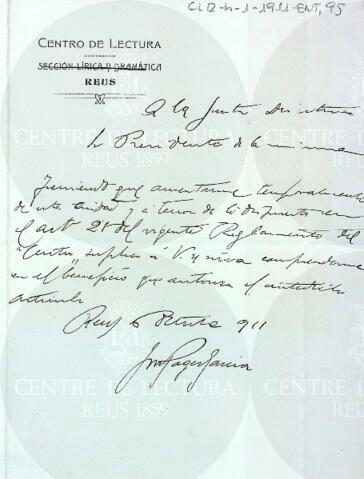 CLB-h-1-1911-ENT, 95
CENTRO DE LECTURA
SECCIÓN LÍRICA Y DRAMÁTICA
REUS
A la Junta Directiva
Presidente de la misma
Teniendo que ausentarme temporalmente
de esta Ciudad y a tenor de lo dispuesto en
el art 21 del vigente Reglamento del
"Centro" suplico a V. se sirva comprenderme
en el beneficio que autoriza el antedicho
artículo
Reus 6 Octubre 911
CENTRE DE LECTURA
REUS 1859
CENTRE DE LECTURA
REUS 1859